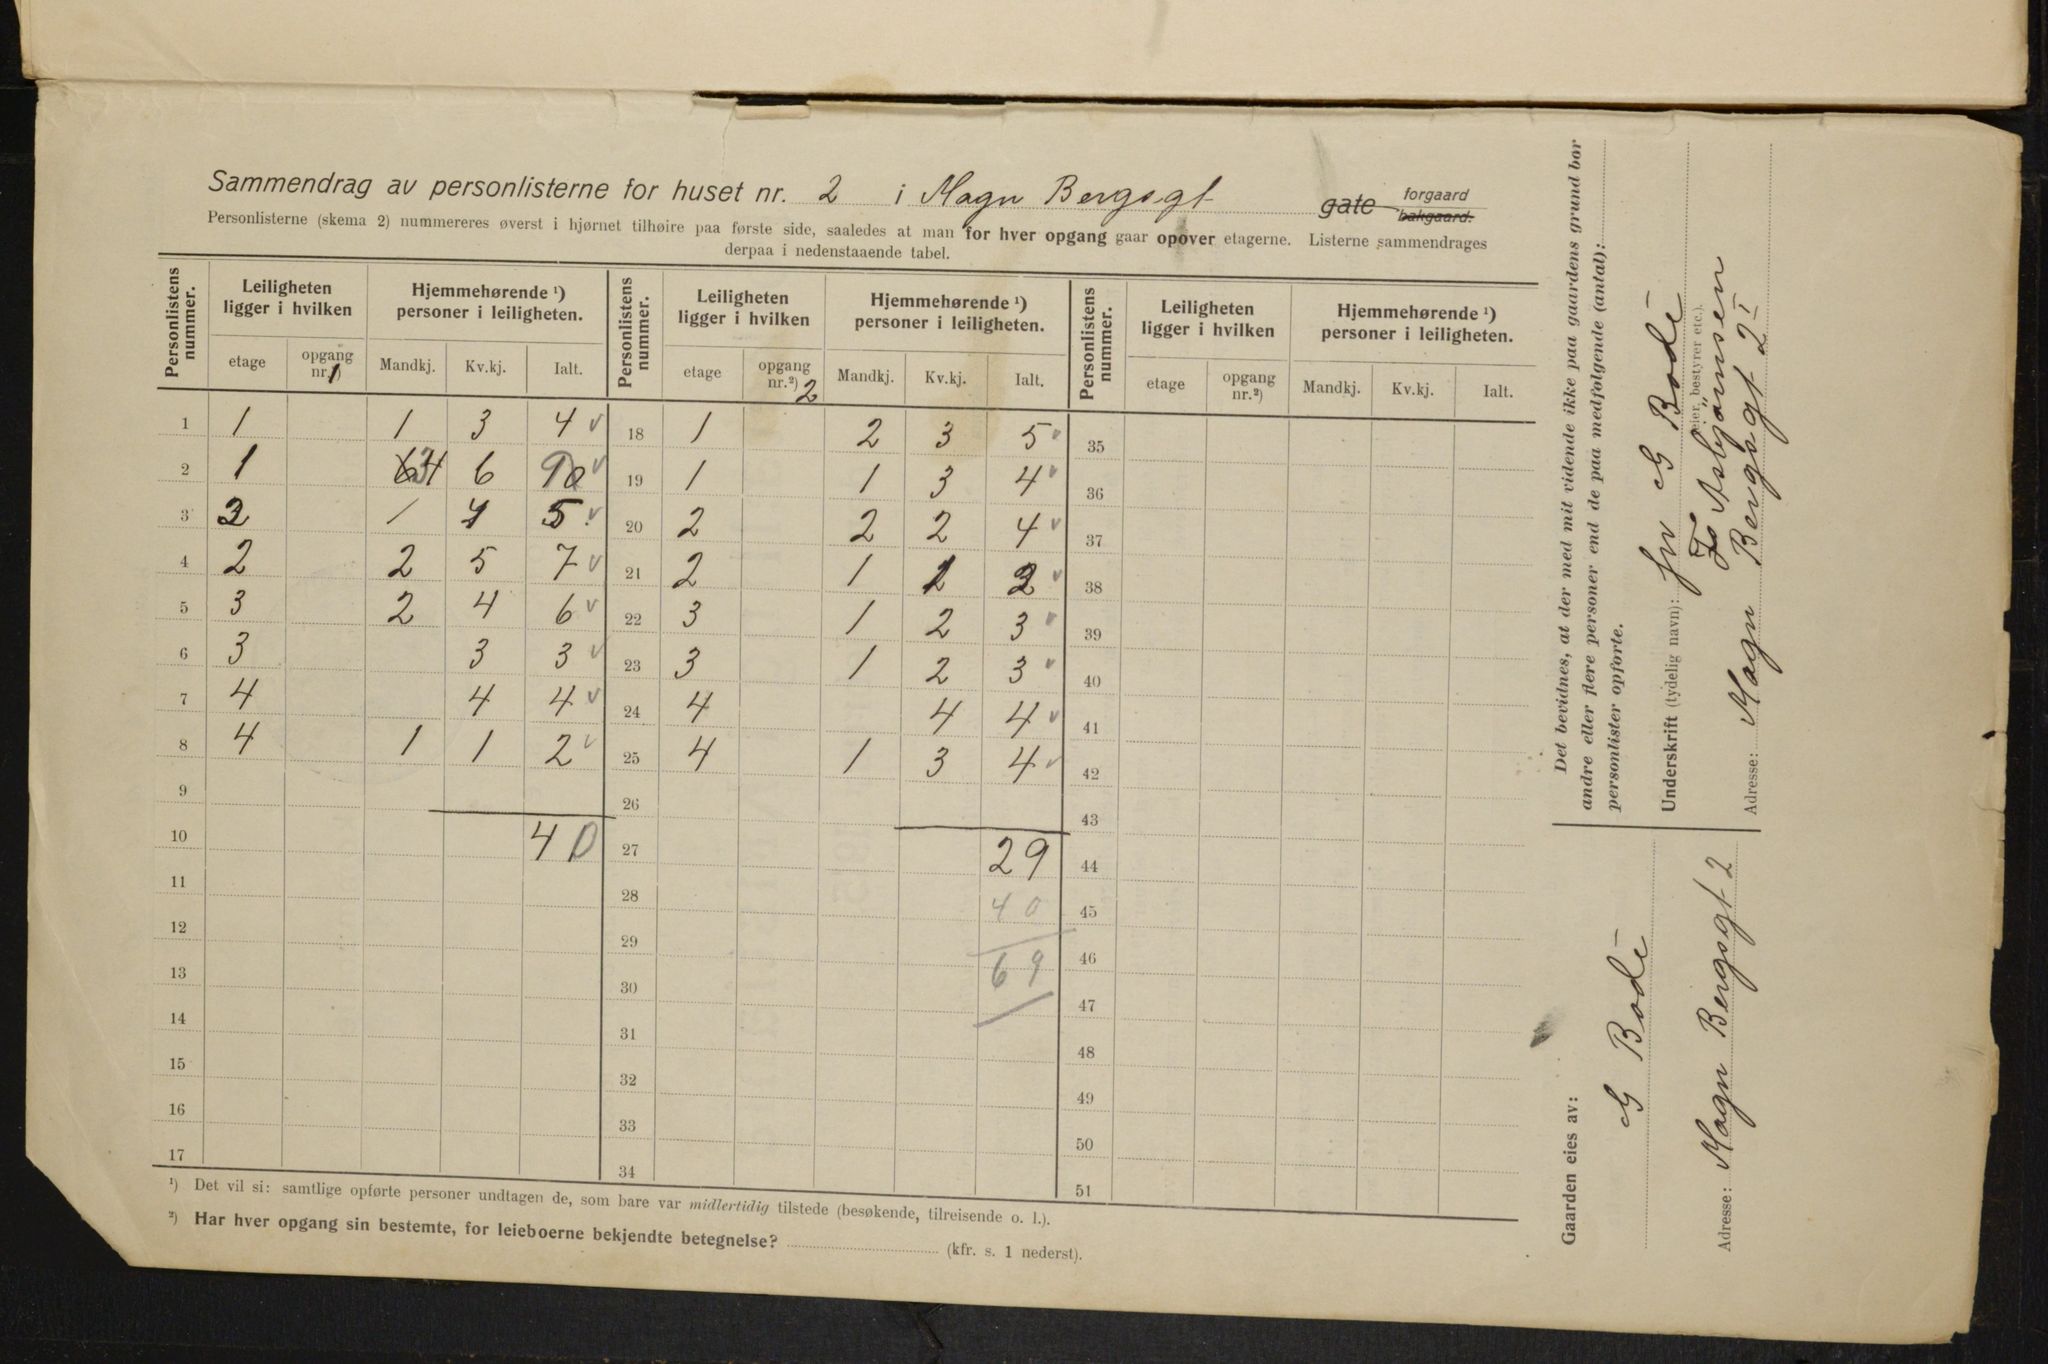 Sammendrag av personlisterne for huset nr. 2 i Magn Bergsgt gate forgaard bakgaard.
Personlisterne (skema 2) nummereres øverst i hjørnet tilhøire paa første side, saaledes at man for hver opgang gaar opover etagerne. Listerne sammendrages
derpaa i nedenstaaende tabel.
Personlistens nummer. Leiligheten ligger i hvilken Hjemmehørende ¹) personer i leiligheten. Personlistens nummer. Leiligheten ligger i hvilken Hjemmehørende ¹) personer i leiligheten. Personlistens nummer. Leiligheten ligger i hvilken Hjemmehørende ¹) personer i leiligheten.
etage opgang nr. 1) Mandkj. Kv.kj. Ialt. etage opgang nr.²) 2 Mandkj. Kv.kj. Ialt. etage opgang nr.²) Mandkj. Kv.kj. Ialt.
1 1 1 3 4 v 18 1 2 3 5 v 35
2 1 6 v 19 1 1 3 4 v 36
3 1 4 5 v 20 2 2 2 4 v 37
4 2 2 5 7 v 21 2 1 v 38
5 3 2 4 6 v 22 3 1 2 3 v 39
6 3 3 3 v 23 3 1 2 3 v 40
7 4 4 4 v 24 4 4 4 v 41
8 4 1 1 2 v 25 4 1 3 4 v 42
9 26 43
10 40 27 29 44
11 28 40 45
12 29 46
13 30 69 47
14 31 48
15 32 49
16 33 50
17 34 51
¹) Det vil si: samtlige opførte personer undtagen de, som bare var midlertidig tilstede (besøkende, tilreisende o. l.).
²) Har hver opgang sin bestemte, for leieboerne bekjendte betegnelse? (kfr. s. 1 nederst).
Det bevidnes, at der med mit vidende ikke paa gaardens grund bor
andre eller flere personer end de paa medfølgende (antal):
personlister opførte.
Underskrift (tydelig navn): for G Bode
(eier, bestyrer etc.).
Asbjørnsen
Adresse: Magn Bergsgt 2 I
Gaarden eies av:
G Bode
Adresse: Magn Bergsgt 2